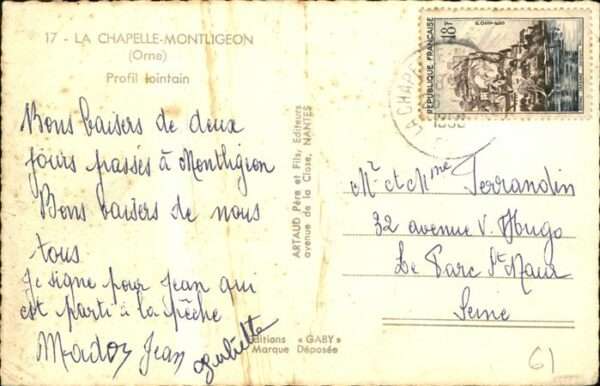 17 - LA CHAPELLE-MONTLIGEON
(Orne)
Profil lointain
Bons baisers de deux
jours passés à Montligeon
Bons baisers de nous
tous
Je signe pour Jean qui
est parti à la pêche
Mado Jean
Juliette
ARTAUD Père et Fils, Editeurs
avenue de la Close, NANTES
Editions « GABY »
Marque Déposée
REPUBLIQUE FRANÇAISE
18F
LA CHAP
Mr et Mme Ferrandin
32 avenue V. Hugo
Le Parc St Maur
Seine
61